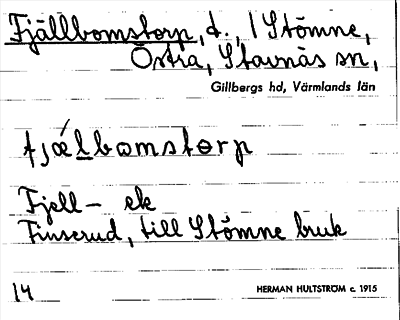 Fjällbomstorp, t., l Stömne,
Östra, Stavnäs sn,
Gillbergs hd, Värmlands län
fjǽlbωmstɵrp
Fjell – ek
Finserud, till Stömne bruk
14
HERMAN HULTSTRÖM c. 1915